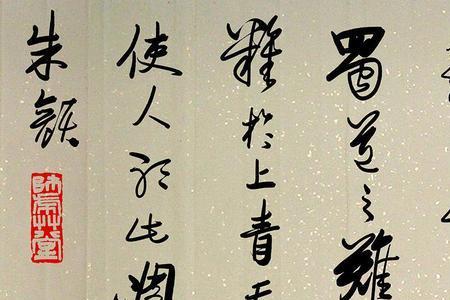 蜀道之難
難於上青天
使人聽此凋
朱顏